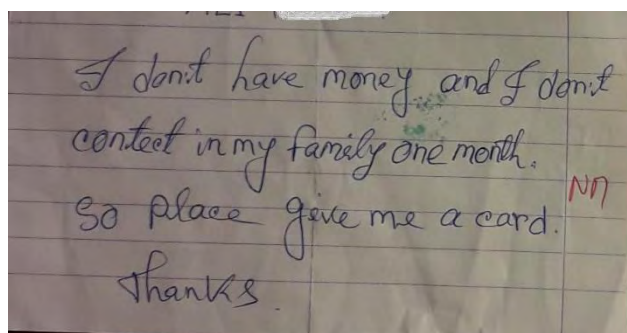 I don't have money and I don't
contect in my family one month.
so place give me a card.
Thanks